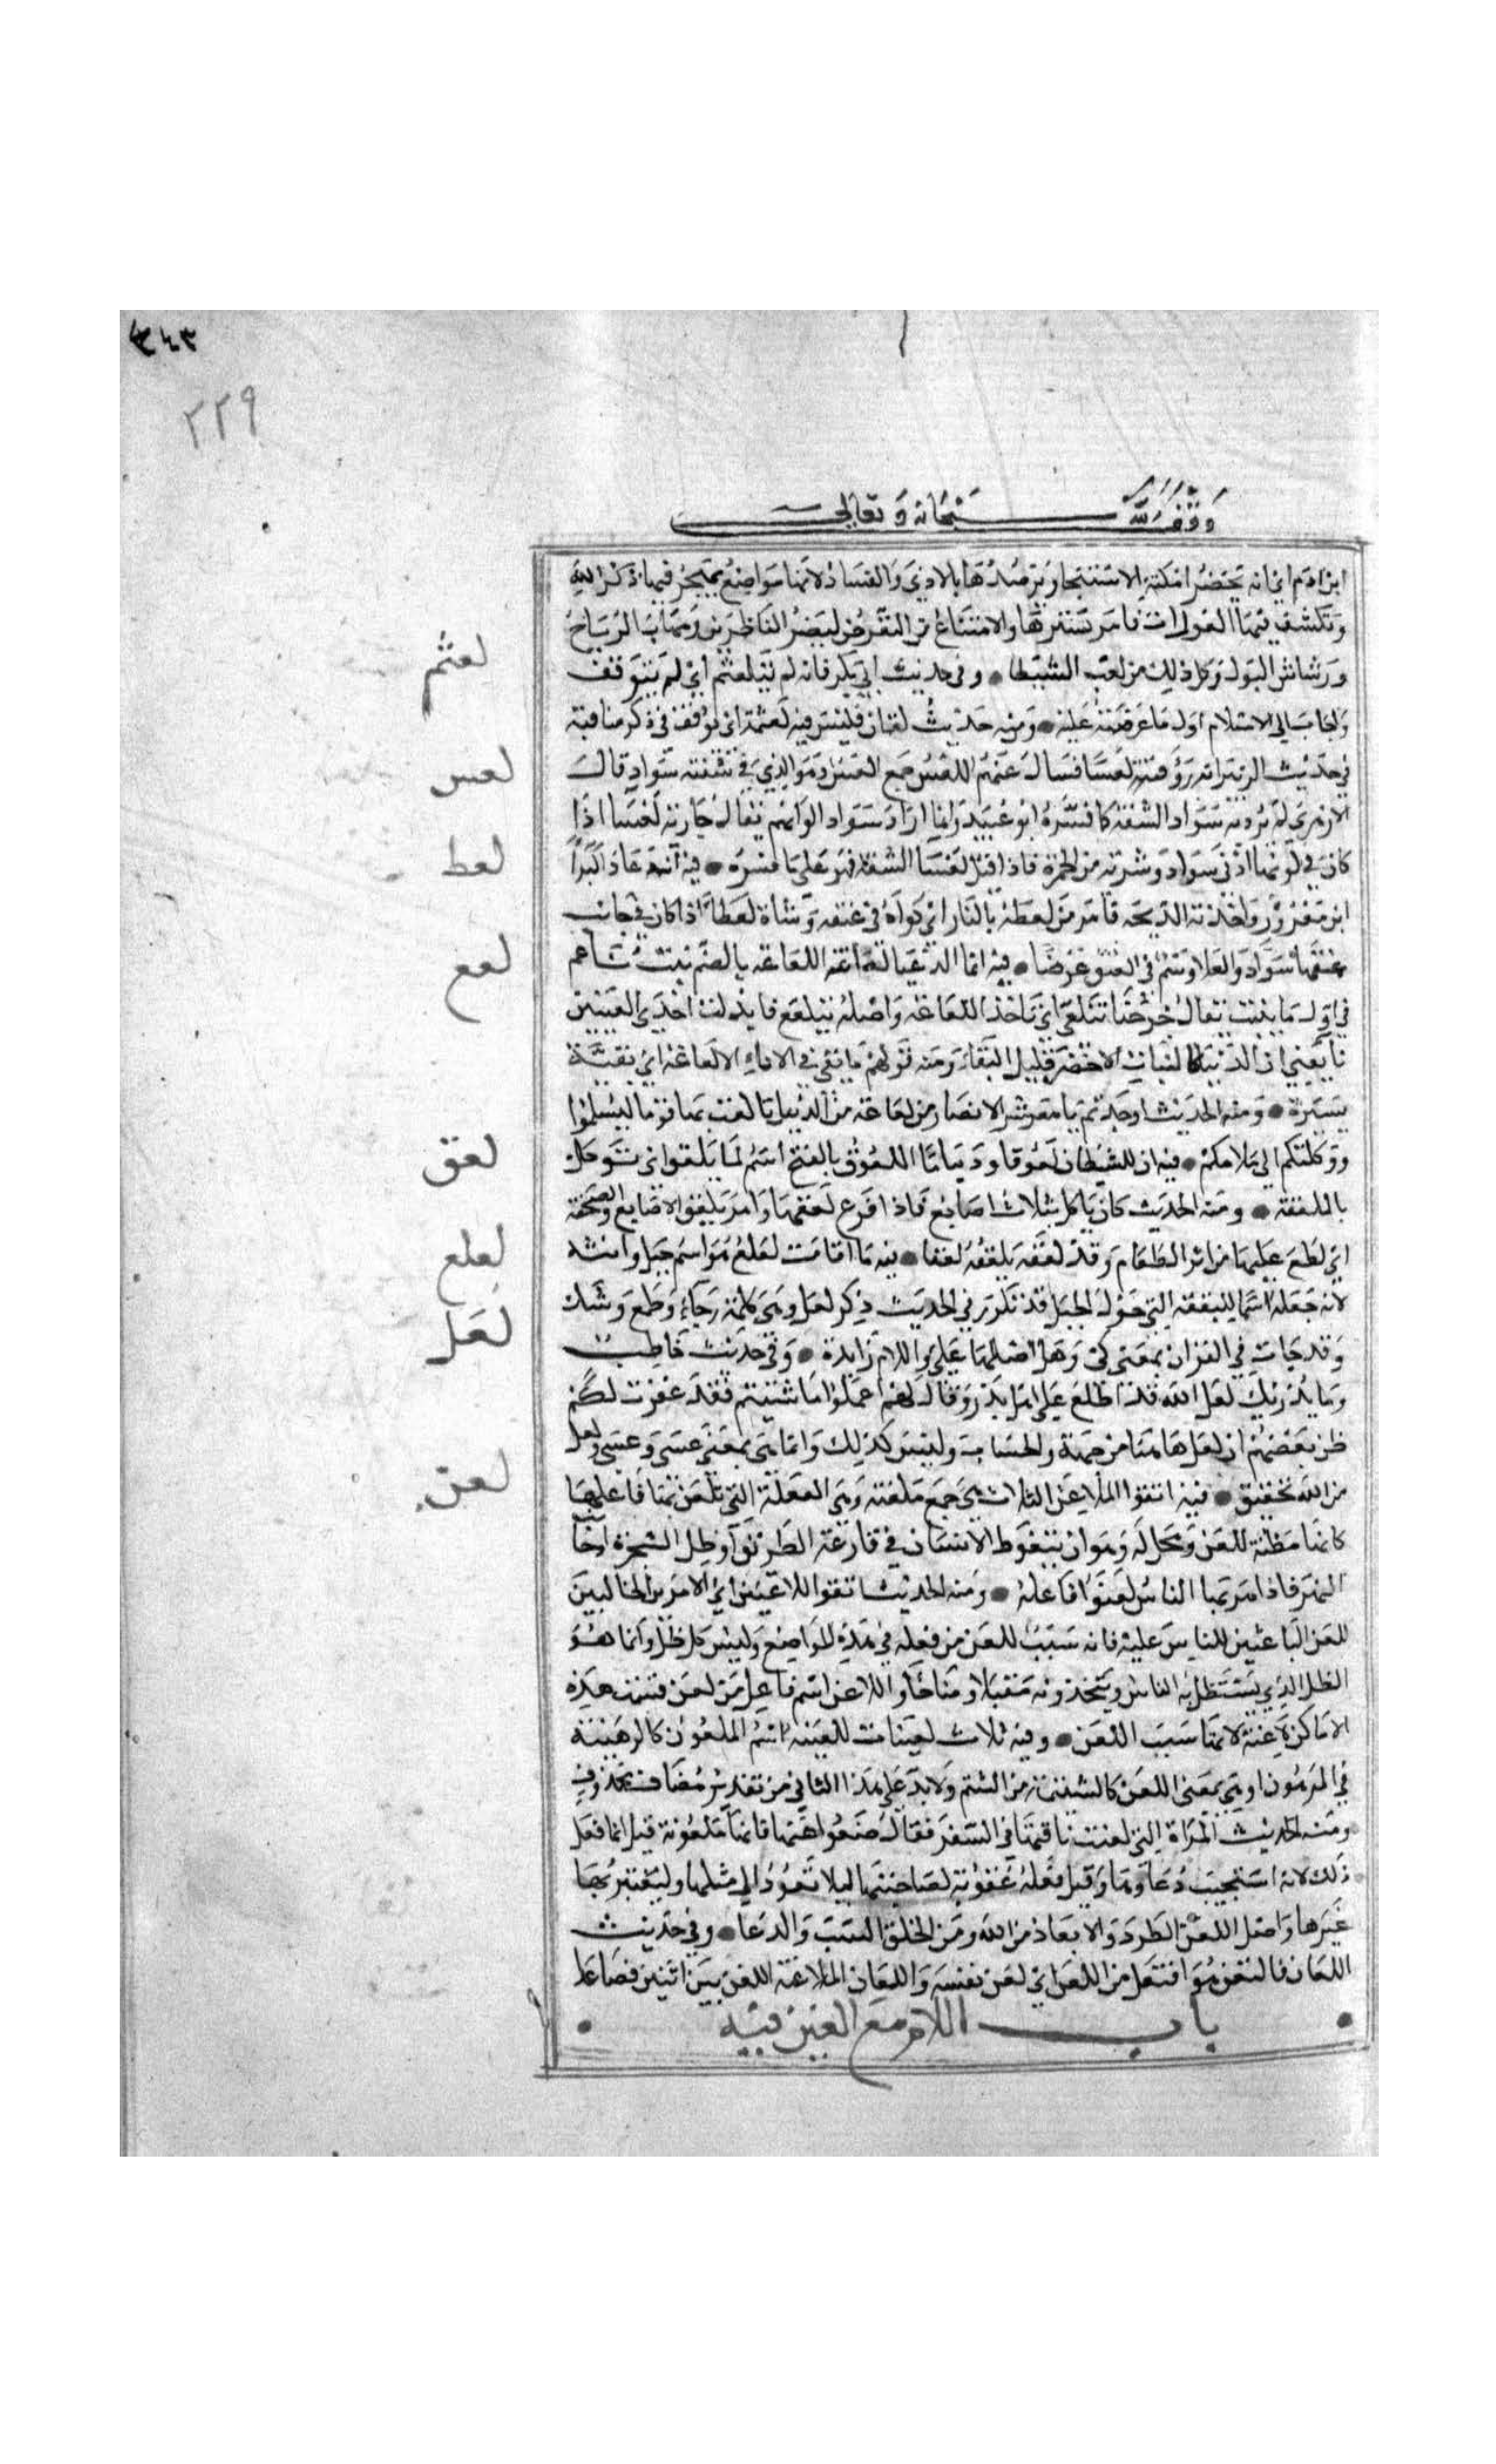 ٣٤٣
٢٢٩
وقف لله سبحانه وتعالى
ابن ادم اي انه يحضر امكنة الاستنجا ويرصدها بالاذى والفساد لانها مواضع يهجر فيها ذكر الله
وتكشف فيها العورات فامر بسترها والامتناع من التعرض لبصر الناظرين ومهاب الرياح
ورشاش البول وكل ذلك من لعب الشيطا • وفي حديث ابي بكر فانه لم يتلعثم اي لم يتوقف
لعثم
واجاب الى الاسلام اول ما عرضته عليه • ومنه حديث لقمان فليس فيه لعثمة اي توقف في ذكر مناقبه
في حديث الزبير انه راى فتية لعسا فسال عنهم اللعس جمع العس وهو الذي في شفته سواد قال
لعس
الازهري لم يرد به سواد الشفة كما فسره ابو عبيد وانما اراد سواد الوانهم يقال جارية لعسا اذا
كان في لونها ادنى سواد وشربه من الحمرة فاذا قيل لعسا الشفة فهو على ما فسره • فيه انه عاد البراء
لعط
ابن معرور واخذته الذبحة فامر من لعطه بالنار اي كواه في عنقه وشاة لعطا اذا كان في جانب
عنقها سواد والعلاط وسم في العنق عرضا • فيه انما الدنيا لعاعة اللعاعة بالضم نبت ناعم
لعع
في اول ما ينبت يقال خرجنا نتلعى اي ناخذ اللعاعة واصله نتلعع فابدلت احدى العينين
يا يعني ان الدنيا كالنبات الاخضر قليل البقاء ومنه قولهم ما بقي في الاناء الا لعاعة اي بقية
يسيرة • ومنه الحديث اوجدتم يا معشر الانصار من لعاعة من الدنيا تالفت بها قوما ليسلموا
ووكلتكم الى اسلامكم • فيه ان للشيطان لعوقا ودساما اللعوق بالفتح اسم لما يلعق اي يوكل
لعق
بالملعقة • ومنه الحديث كان ياكل بثلاث اصابع فاذا فرغ لعقها وامر بلعق الاصابع والصحفة
اي لطع عليها من اثر الطعام وقد لعقه يلعقه لعقا • فيه ما اقامت لعلع هو اسم جبل وانثه
لعلع
لانه جعله اسما للبقعة التي حول الجبل قد تكرر في الحديث ذكر لعل وهي كلمة رجاء وطمع وشك
لعل
وقد جات في القران بمعنى كي وهل اصلها عل واللام زايدة • وفي حديث حاطب
وما يدريك لعل الله قد اطلع على اهل بدر وقال لهم اعملوا ما شئتم فقد غفرت لكم
ظن بعضهم ان لعل هاهنا من جهة والحساب وليس كذلك وانما هي بمعنى عسى وعسى ولعل
من الله تحقيق • فيه اتقوا الملاعن الثلاث هي جمع ملعنة وهي الفعلة التي تلعن بها فاعلها
لعن
كانها مظنة للعن ومحل له وهو ان يتغوط الانسان في قارعة الطريق او ظل الشجرة او جانب
النهر فاذا مر بها الناس لعنوا فاعله • ومنه الحديث اتقوا اللاعنين اي الامرين الجالبين
للعن الباعثين للناس عليه فانه سبب للعن من فعله في هذه المواضع وليس كل ظل وانما هو
الظل الذي يستظل به الناس ويتخذونه مقيلا ومناخا واللاعن اسم فاعل من لعن فسميت هذه
الاماكن لاعنة لانها سبب اللعن • وفيه ثلاث لعينات اللعينة اسم الملعون كالرهينة
في المرهون او هي بمعنى اللعن كالشتيمة من الشتم ولا بد على هذا الثاني من تقدير مضاف محذوف
ومنه الحديث المراة التي لعنت ناقتها في السفر فقال ضعوا عنها فانها ملعونة قيل انما فعل
ذلك لانه استجيب دعاوها وقيل فعله عقوبة لصاحبتها ليلا تعود الى مثلها وليعتبر بها
غيرها واصل اللعن الطرد والابعاد من الله ومن الخلق السب والدعا • وفي حديث
اللعان فالتعن هو افتعل من اللعن اي لعن نفسه واللعان الملاعنة اللعن بين اثنين فصاعدا
• باب اللام مع الغين فيه •